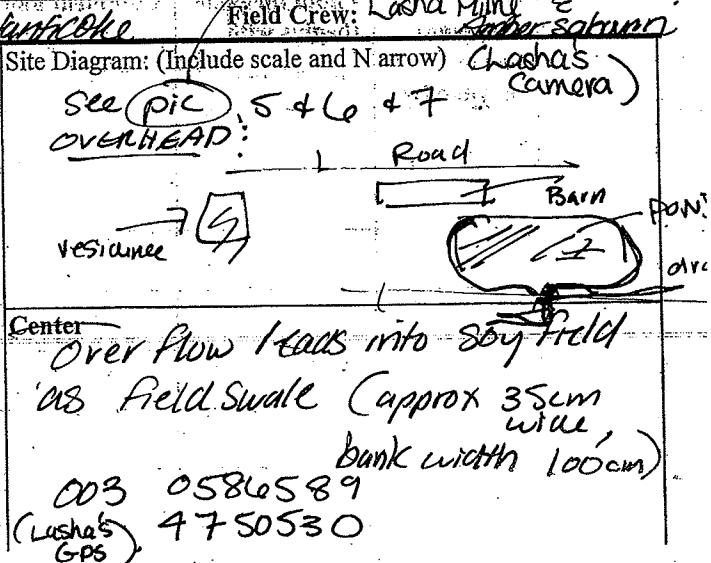 Nanticoke Field Crew: Lasha Milne &
Ambersabunn
Site Diagram: (Include scale and N arrow) (Lasha's
Camera)
See pic 5 & 6 & 7
OVERHEAD:
Road
Barn
residence
Center
Over flow leads into soy field
as field swale (approx 35cm
wide,
bank width 100cm)
003 0586589
(Lasha's 4750530
GPS)